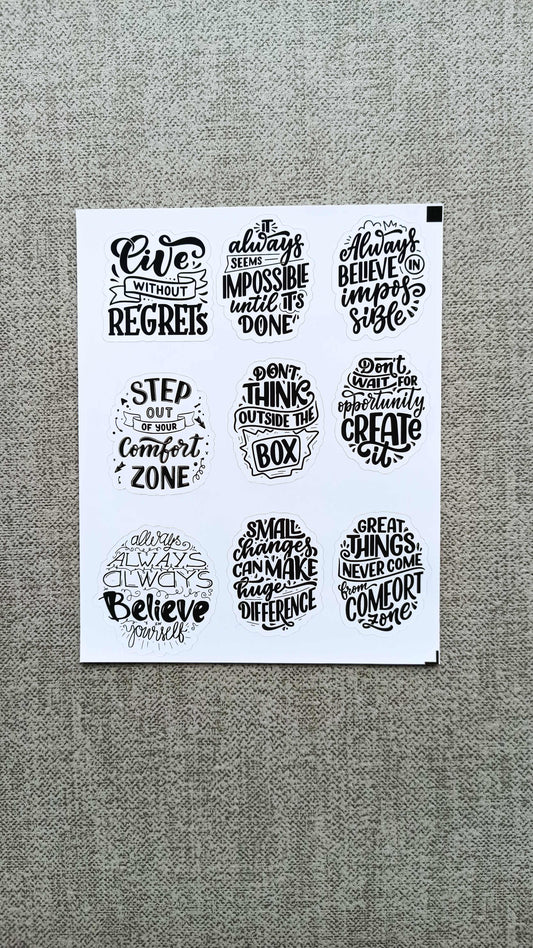 Live
WITHOUT
REGRETS
iT
always
SEEMS
IMPOSSIBLE
until iTS
DONE
Always
BELIEVE IN
impos
siBle
STEP
OUT
OF YOUR
Comfort
ZONE
DON'T
THINK
OUTSIDE THE
BOX
Don't
WAIT FOR
opportunity
CREATE
it
always
ALWAYS
always
Believe
in
yourself
SMALL
changes
CAN MAKE
huge
DIFFERENCE
GREAT
THINGS
NEVER COME
from
COMFORT
zone